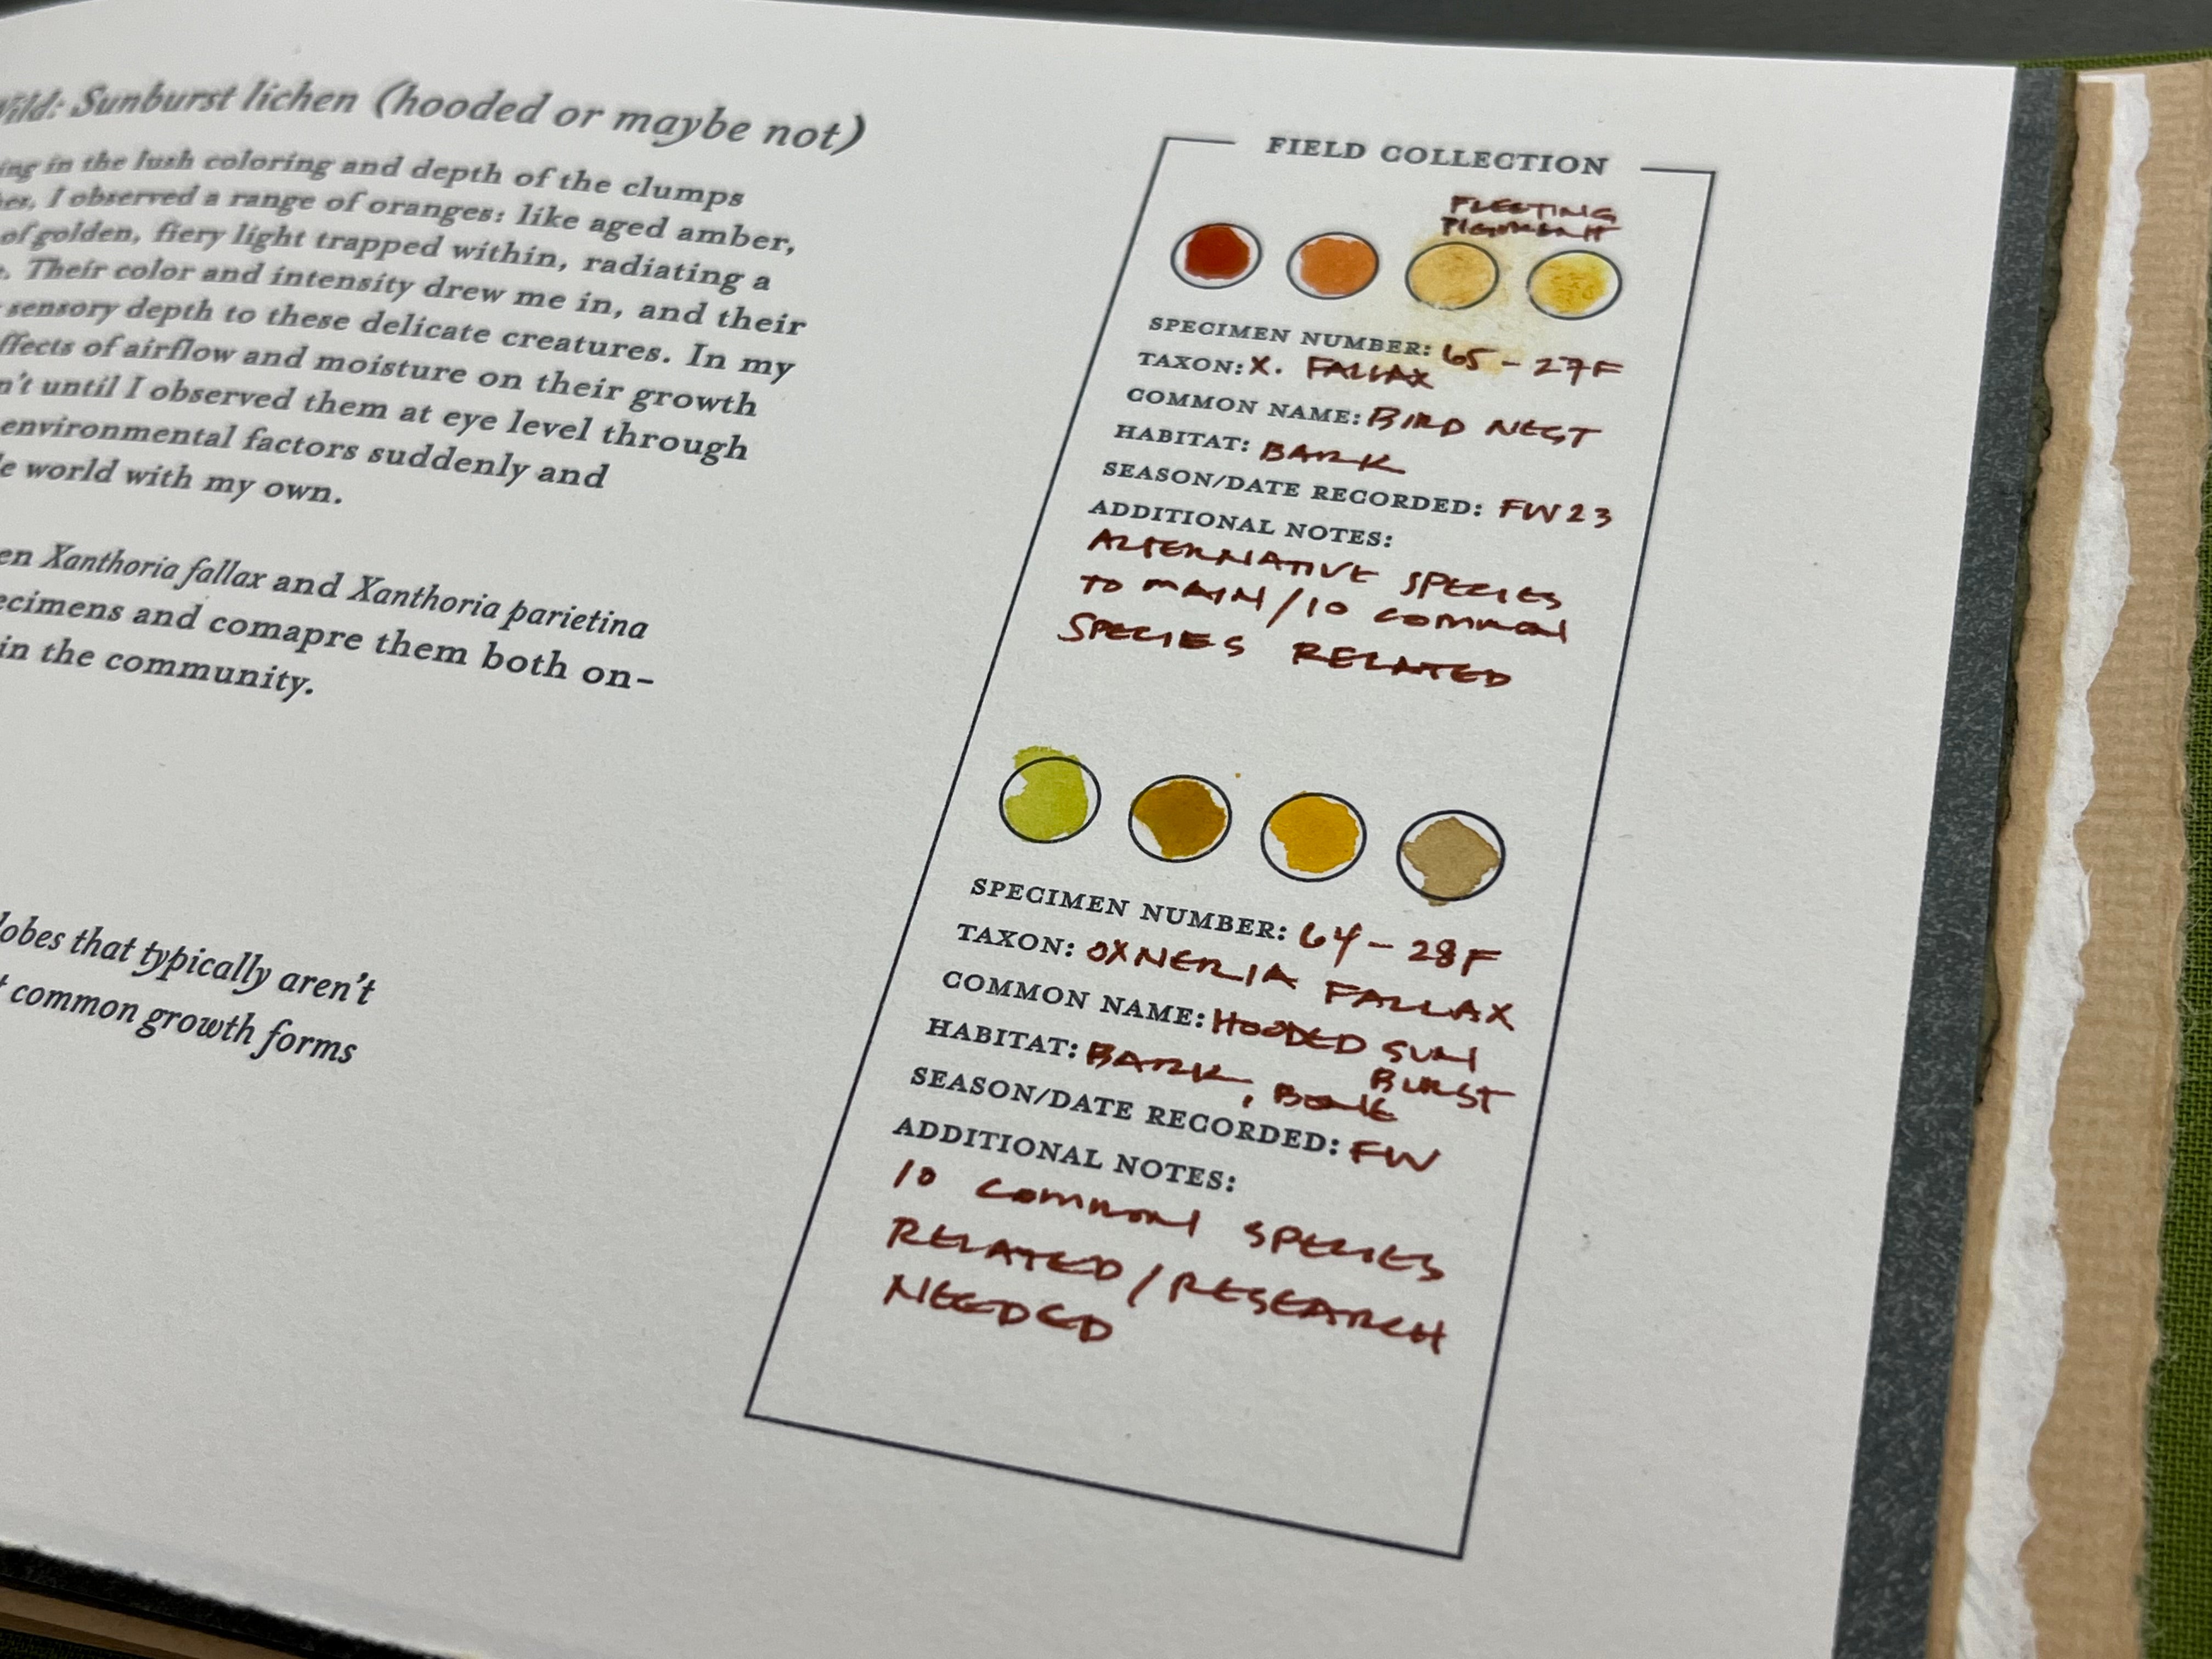 Wild: Sunburst lichen (hooded or maybe not)
in the lush coloring and depth of the clumps
I observed a range of oranges: like aged amber,
of golden, fiery light trapped within, radiating a
Their color and intensity drew me in, and their
sensory depth to these delicate creatures. In my
of airflow and moisture on their growth
until I observed them at eye level through
environmental factors suddenly and
world with my own.
Xanthoria fallax and Xanthoria parietina
and comapre them both on-
in the community.
lobes that typically aren't
common growth forms
FIELD COLLECTION
FLEETING
PIGMENT
SPECIMEN NUMBER: 65-27F
TAXON: X. FALLAX
COMMON NAME: BIRD NEST
HABITAT: BARK
SEASON/DATE RECORDED: FW23
ADDITIONAL NOTES:
ALTERNATIVE SPECIES
TO MAIN/10 COMMON
SPECIES RELATED
SPECIMEN NUMBER: 64-28F
TAXON: OXNERIA FALLAX
COMMON NAME: HOODED SUN
BURST
HABITAT: BARK, BONE
SEASON/DATE RECORDED: FW
ADDITIONAL NOTES:
10 COMMON SPECIES
RELATED/RESEARCH
NEEDED